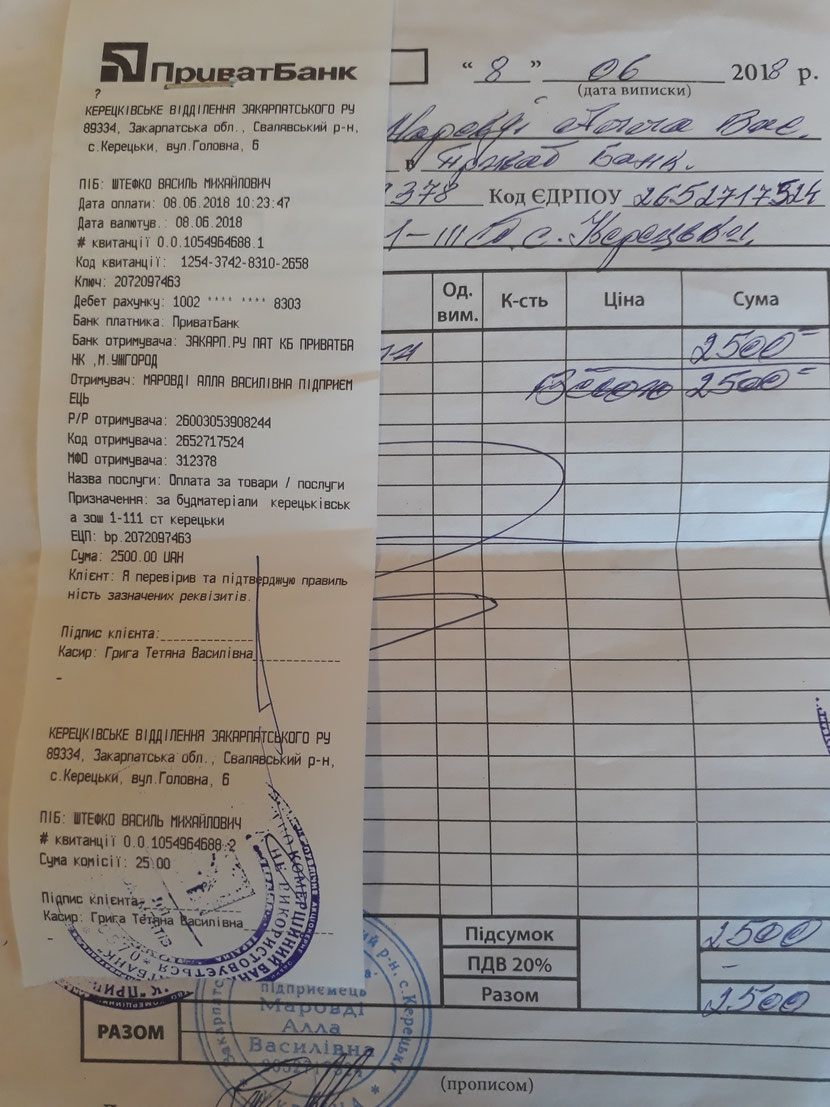 ПриватБанк
?
КЕРЕЦКІВСЬКЕ ВІДДІЛЕННЯ ЗАКАРПАТСЬКОГО РУ
89334, Закарпатська обл., Свалявський р-н,
с.Керецьки, вул.Головна, 6
ПІБ: ШТЕФКО ВАСИЛЬ МИХАЙЛОВИЧ
Дата оплати: 08.06.2018 10:23:47
Дата валютув.: 08.06.2018
# квитанції 0.0.1054964688.1
Код квитанції: 1254-3742-8310-2658
Ключ: 2072097463
Дебет рахунку: 1002 **** **** 8303
Банк платника: ПриватБанк
Банк отримувача: ЗАКАРП.РУ ПАТ КБ ПРИВАТБА
НК ,М.УЖГОРОД
Отримувач: МАРОВДІ АЛЛА ВАСИЛІВНА ПІДПРИЄМ
ЕЦЬ
Р/Р отримувача: 26003053908244
Код отримувача: 2652717524
МФО отримувача: 312378
Назва послуги: Оплата за товари / послуги
Призначення: за будматеріали керецьківськ
а зош 1-111 ст керецьки
ЕЦП: bp.2072097463
Сума: 2500.00 UAH
Клієнт: Я перевірив та підтверджую правиль
ність зазначених реквізитів.
Підпис клієнта:
Касир: Грига Тетяна Василівна
-
КЕРЕЦКІВСЬКЕ ВІДДІЛЕННЯ ЗАКАРПАТСЬКОГО РУ
89334, Закарпатська обл., Свалявський р-н,
с.Керецьки, вул.Головна, 6
ПІБ: ШТЕФКО ВАСИЛЬ МИХАЙЛОВИЧ
# квитанції 0.0.1054964688.2
Сума комісії: 25.00
Підпис клієнта
Касир: Грига Тетяна Василівна
-
“ 8 ” 06 2018 р.
(дата виписки)
Маровді Алла Вас.
в Приват Банк.
2378 Код ЄДРПОУ 2652717524
І-ІІІ ст. с. Керецьки
Од. вим. К-сть Ціна Сума
2500=
Всього 2500=
Підсумок 2500
ПДВ 20% -
Разом 2500
РАЗОМ
(прописом)
підприємець
Маровді
Алла
Василівна
р-н, с. Керецьки
КОМЕРЦІЙНИЙ БАНК
НЕ ВИКОРИСТОВУЄТЬСЯ